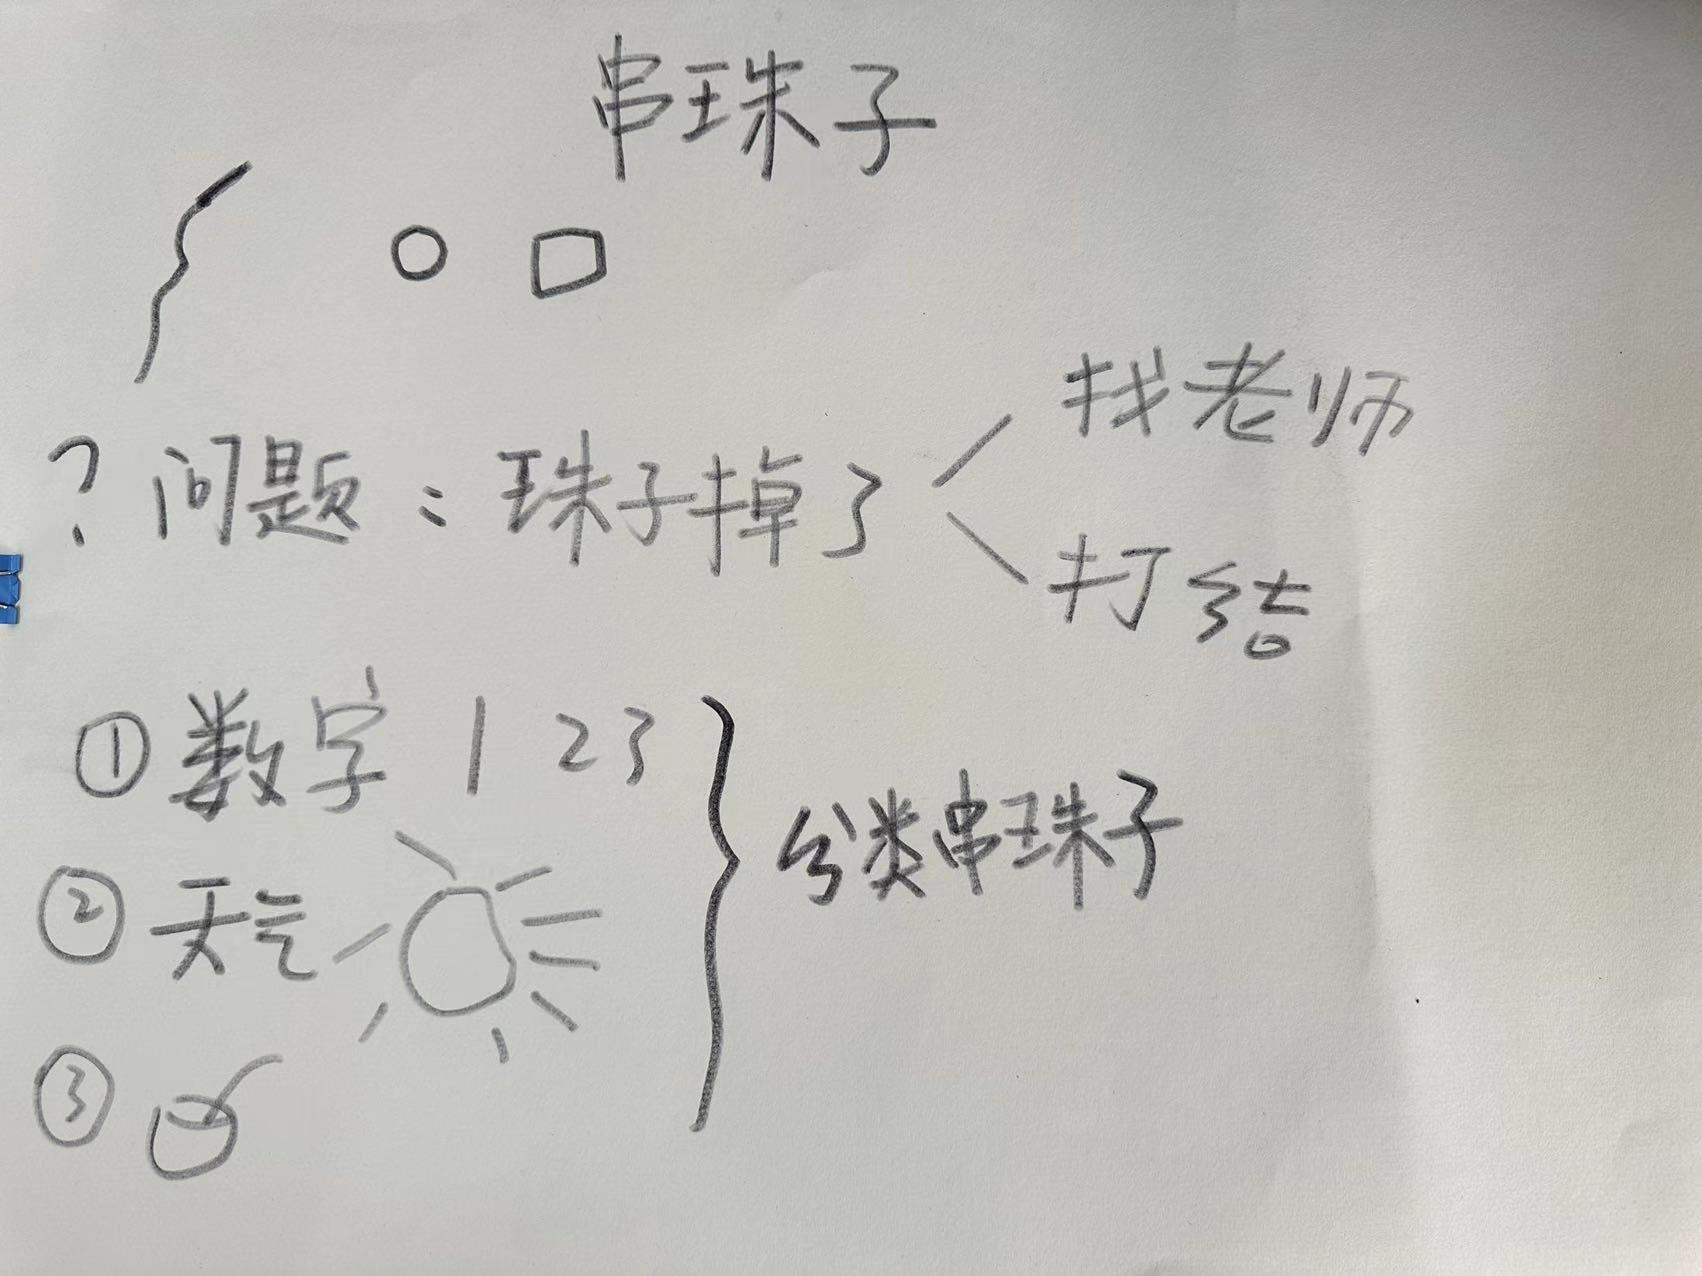 串珠子
？问题：珠子掉了
找老师
打结
① 数字 1 2 3
② 天气
③
分类串珠子